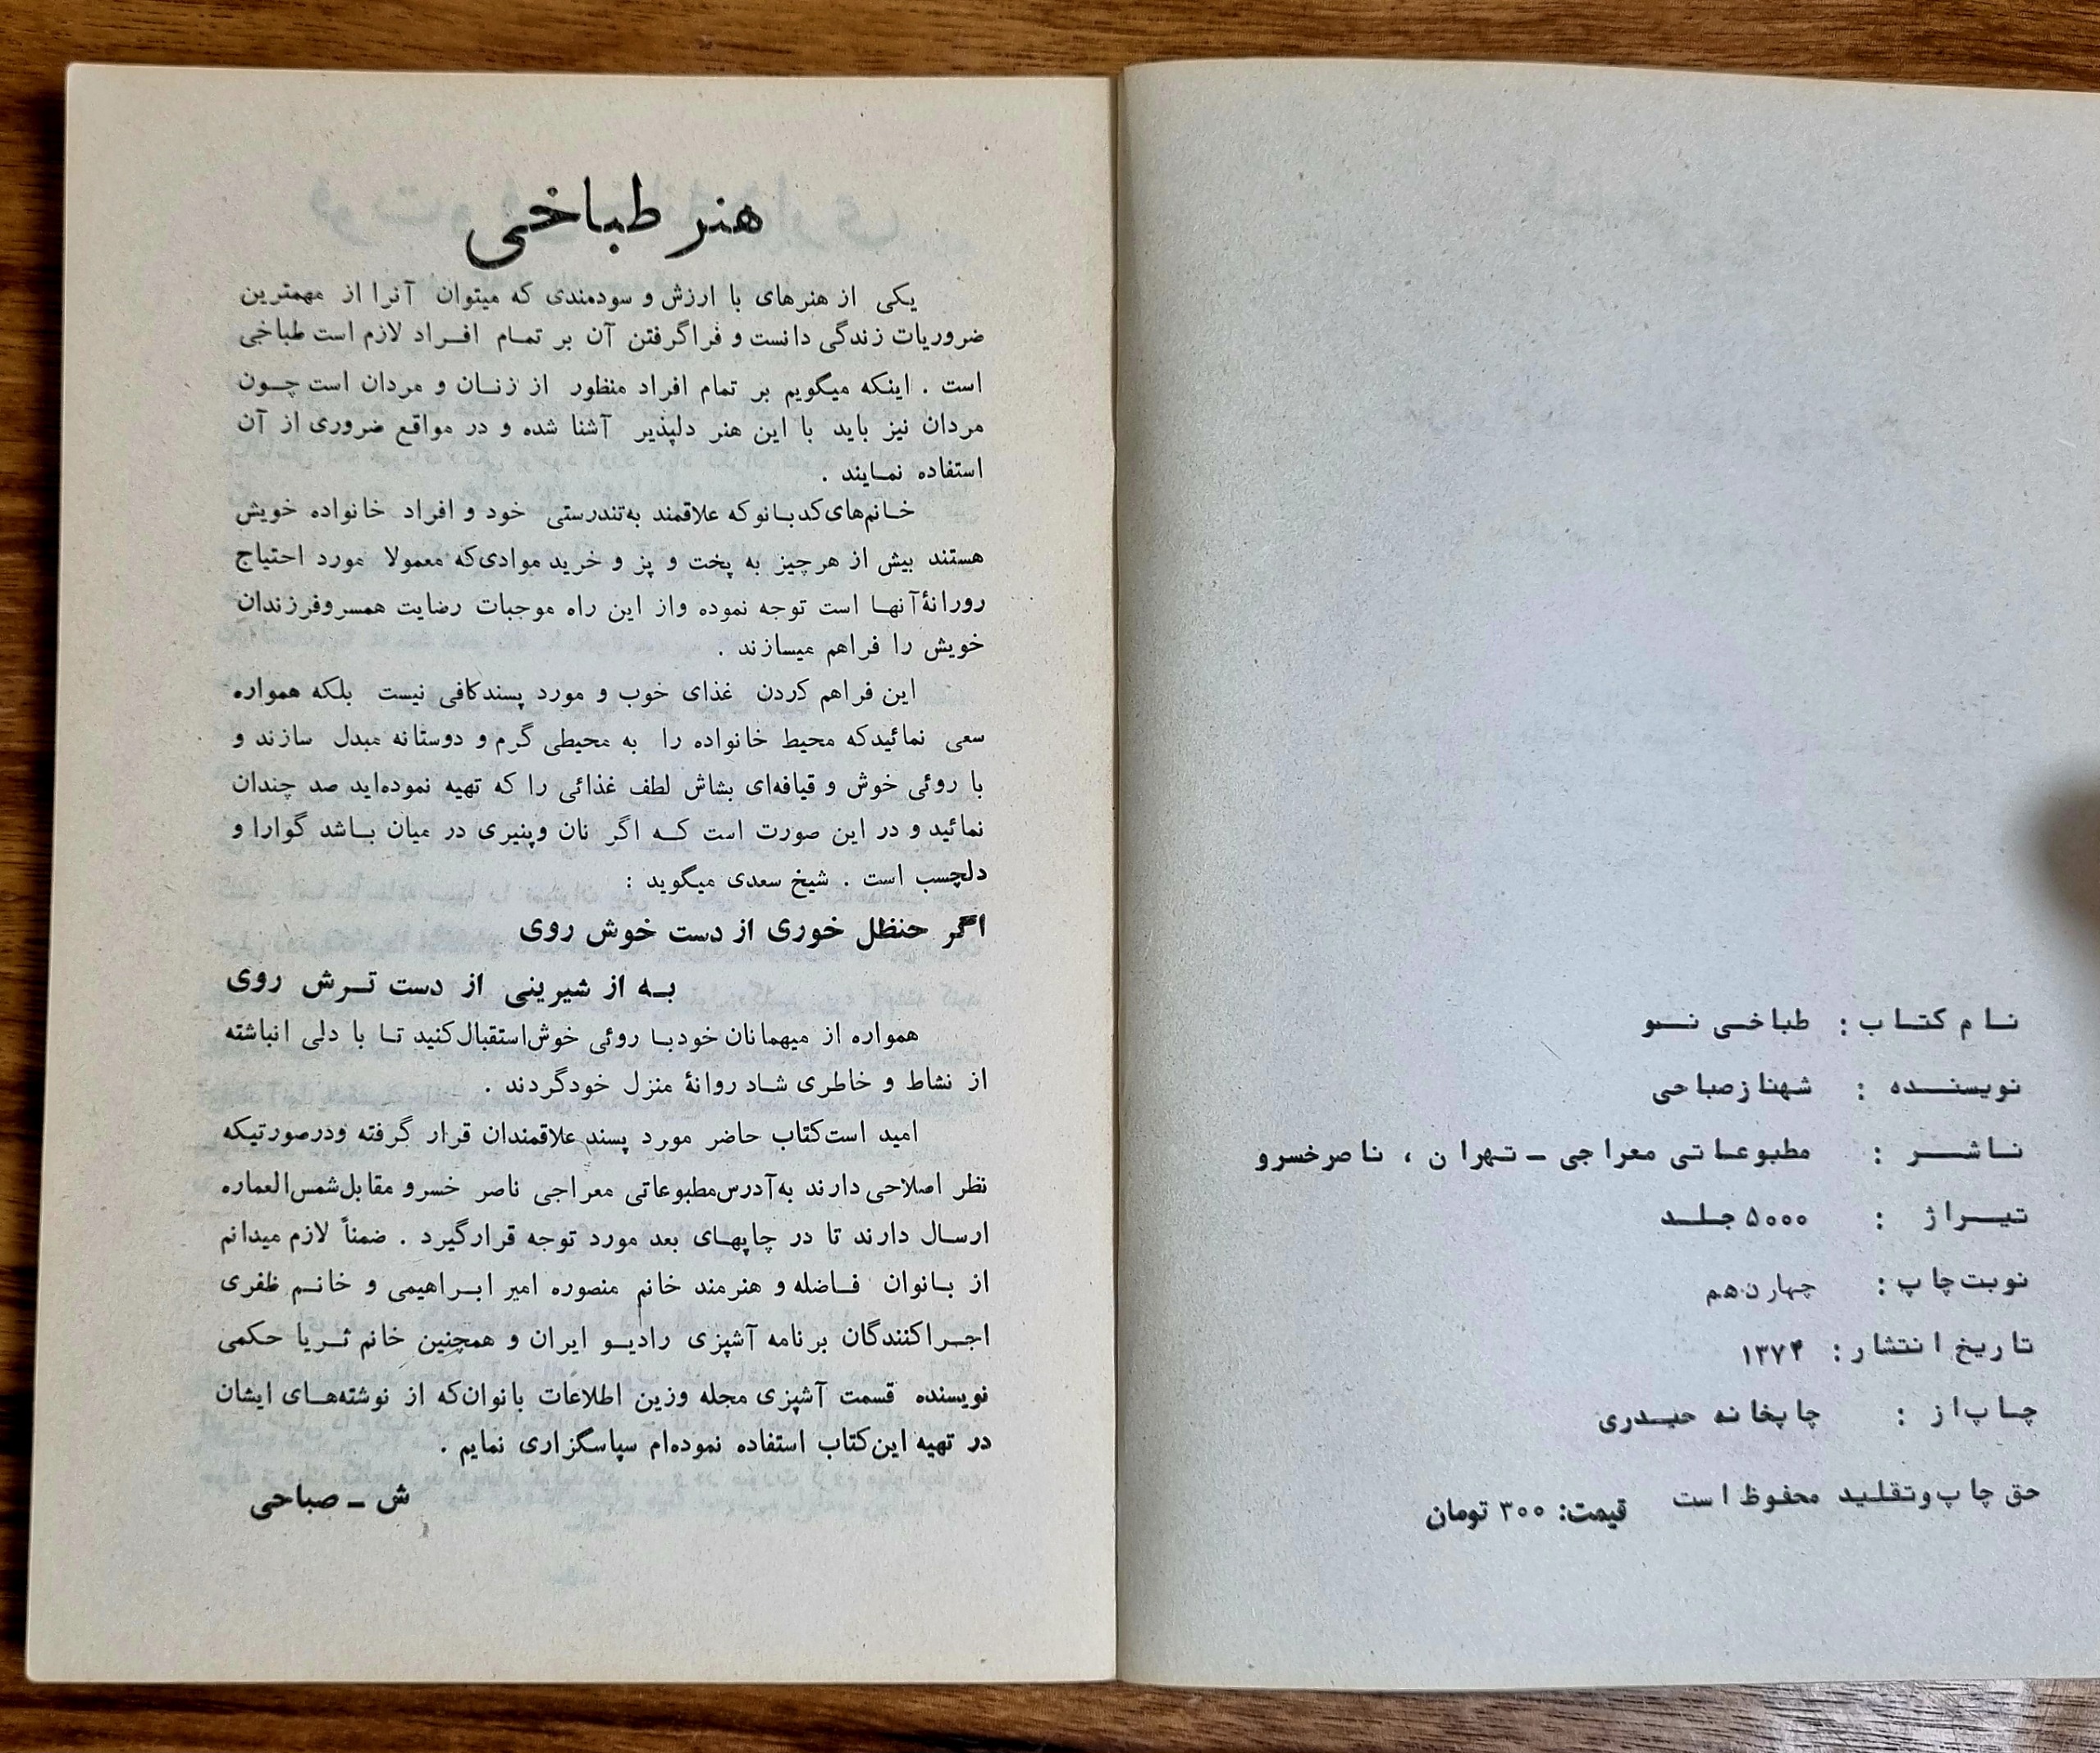 نام کتاب : طباخی نو
نویسنده : شهناز صباحی
ناشر : مطبوعاتی معراجی ـ تهران ، ناصرخسرو
تیراژ : ۵۰۰۰ جلد
نوبت چاپ : چهاردهم
تاریخ انتشار : ۱۳۷۴
چاپ از : چاپخانه حیدری
حق چاپ و تقلید محفوظ است قیمت: ۳۰۰ تومان
هنر طباخی
یکی از هنرهای با ارزش و سودمندی که میتوان آنرا از مهمترین
ضروریات زندگی دانست و فراگرفتن آن بر تمام افراد لازم است طباخی
است . اینکه میگویم بر تمام افراد منظور از زنان و مردان است چون
مردان نیز باید با این هنر دلپذیر آشنا شده و در مواقع ضروری از آن
استفاده نمایند .
خانم‌های کدبانو که علاقمند به‌تندرستی خود و افراد خانواده خویش
هستند بیش از هر چیز به پخت و پز و خرید موادی‌که معمولا مورد احتیاج
رورانهٔ آنها است توجه نموده واز این راه موجبات رضایت همسر وفرزندان
خویش را فراهم میسازند .
این فراهم کردن غذای خوب و مورد پسند کافی نیست بلکه همواره
سعی نمائیدکه محیط خانواده را به محیطی گرم و دوستانه مبدل سازند و
با روئی خوش و قیافه‌ای بشاش لطف غذائی را که تهیه نموده‌اید صد چندان
نمائید و در این صورت است که اگر نان وپنیری در میان باشد گوارا و
دلچسب است . شیخ سعدی میگوید :
اگر حنظل خوری از دست خوش روی
به از شیرینی از دست ترش روی
همواره از میهمانان خودبا روئی خوش‌استقبال‌کنید تا با دلی انباشته
از نشاط و خاطری شاد روانهٔ منزل خودگردند .
امید است‌کتاب حاضر مورد پسند علاقمندان قرار گرفته ودرصورتیکه
نظر اصلاحی دارند به‌آدرس‌مطبوعاتی معراجی ناصر خسرو مقابل‌شمس‌العماره
ارسال دارند تا در چاپهای بعد مورد توجه قرارگیرد . ضمناً لازم میدانم
از بانوان فاضله و هنرمند خانم منصوره امیر ابراهیمی و خانم ظفری
اجراکنندگان برنامه آشپزی رادیو ایران و همچنین خانم ثریا حکمی
نویسنده قسمت آشپزی مجله وزین اطلاعات بانوان‌که از نوشته‌های ایشان
در تهیه این‌کتاب استفاده نموده‌ام سپاسگزاری نمایم .
ش ـ صباحی